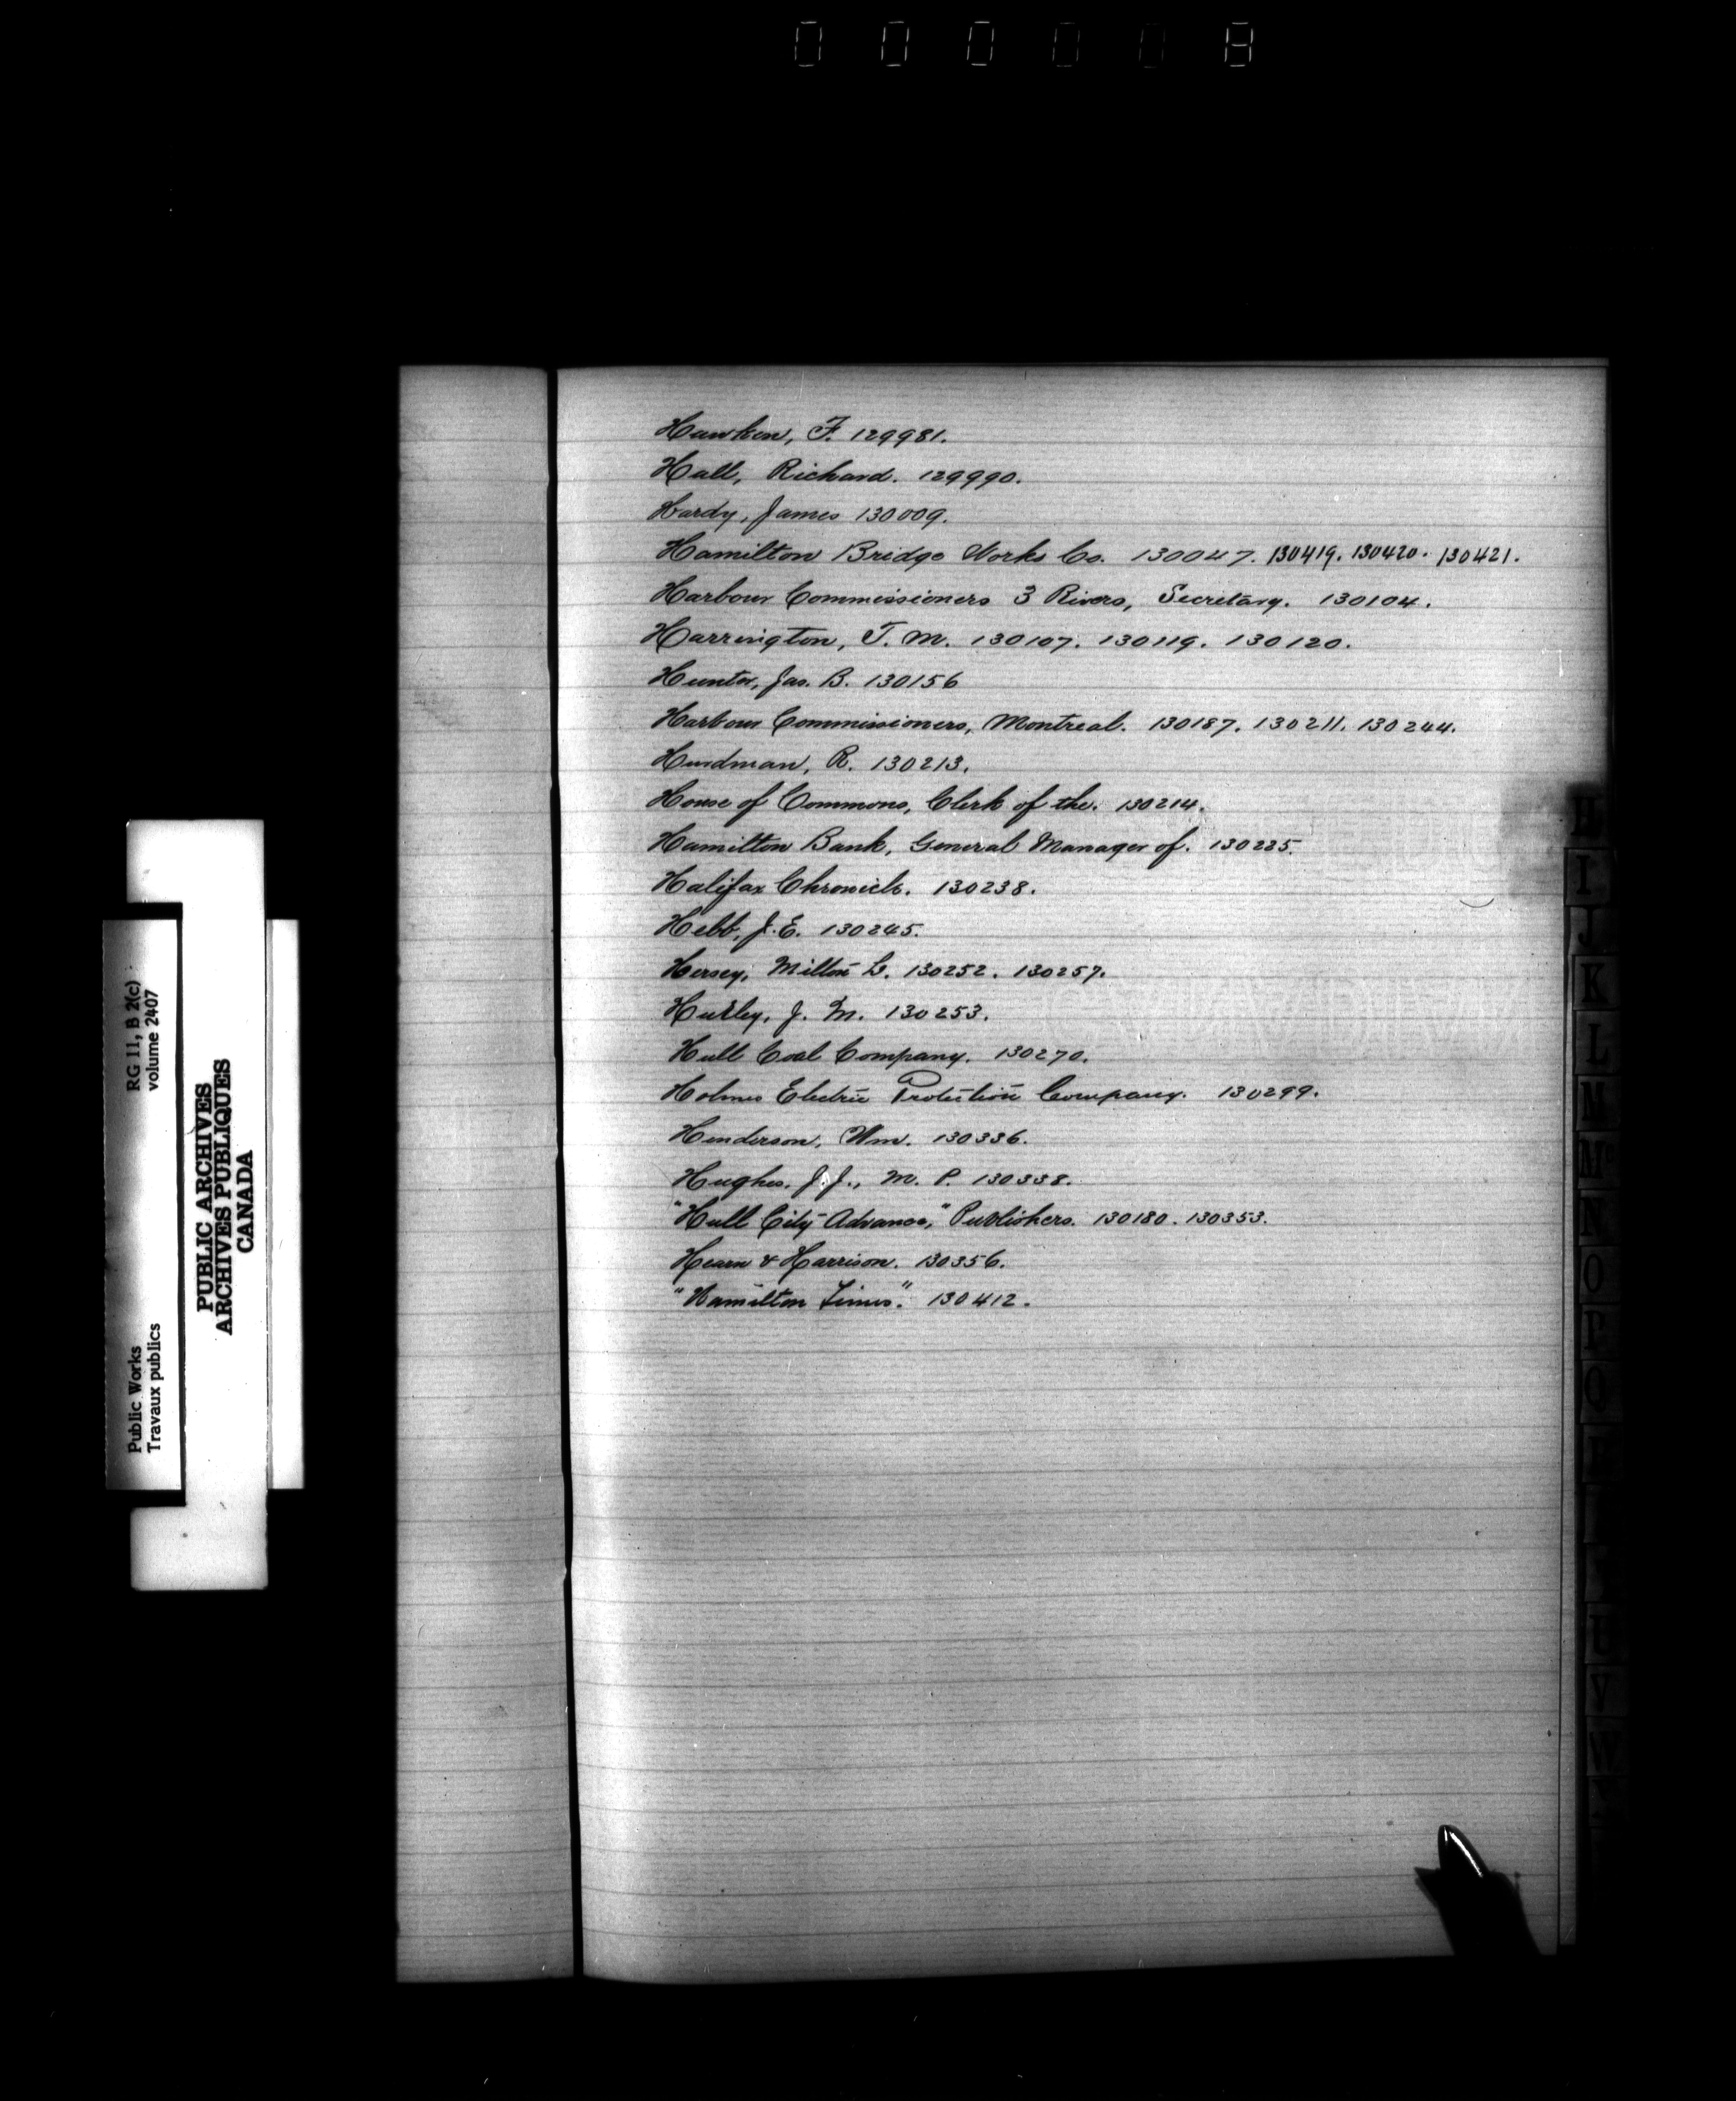 000008
Hawken, F. 129981.
Hall, Richard. 129990.
Hardy, James 130009.
Hamilton Bridge Works Co. 130047. 130419. 130420. 130421.
Harbour Commissioners 3 Rivers, Secretary. 130104.
Harrington, T. M. 130107. 130119. 130120.
Hunter, Jas. B. 130156
Harbour Commissioners, Montreal. 130187. 130211. 130244.
Hurdman, R. 130213.
House of Commons, Clerk of the. 130214.
Hamilton Bank, General Manager of. 130225.
Halifax Chronicle. 130238.
Hebb, J. E. 130245.
Hersey, Milton L. 130252. 130257.
Hurley, J. M. 130253.
Hull Coal Company. 130270.
Holmes Electric Protection Company. 130299.
Henderson, Wm. 130336.
Hughes, J. J., M. P. 130338.
"Hull City Advance," Publishers. 130180. 130353.
Hearn & Harrison. 130356.
"Hamilton Times". 130412.
Public Works RG 11, B 2(c)
Travaux publics volume 2407
PUBLIC ARCHIVES
ARCHIVES PUBLIQUES
CANADA
H
I
J
K
L
M
Mc
N
O
P
Q
R
T
U
V
W